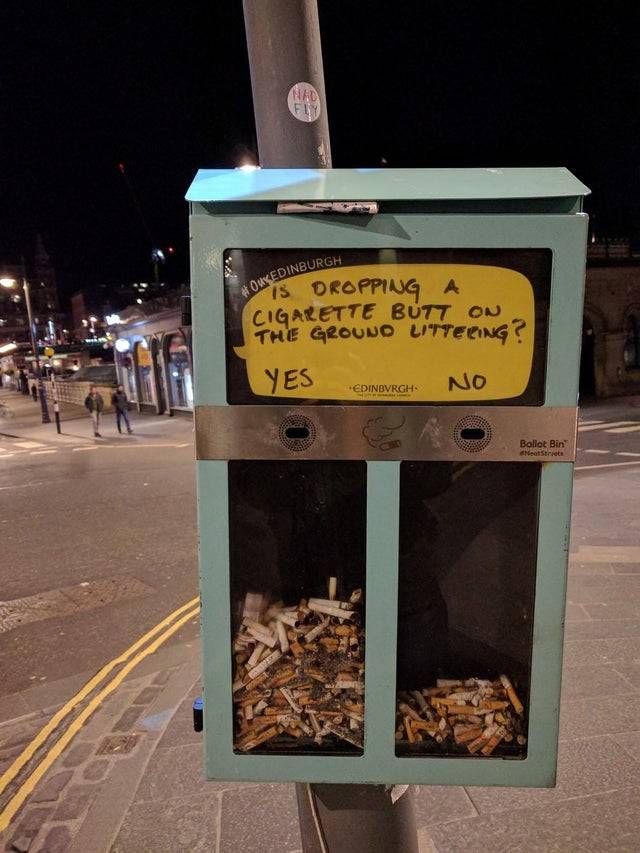 NAD
FLY
#OurEDINBURGH
IS DROPPING A
CIGARETTE BUTT ON
THE GROUND LITTERING?
YES
NO
·EDINBVRGH·
THE CITY OF EDINBURGH COUNCIL
Ballot Bin™
#NeatStreets